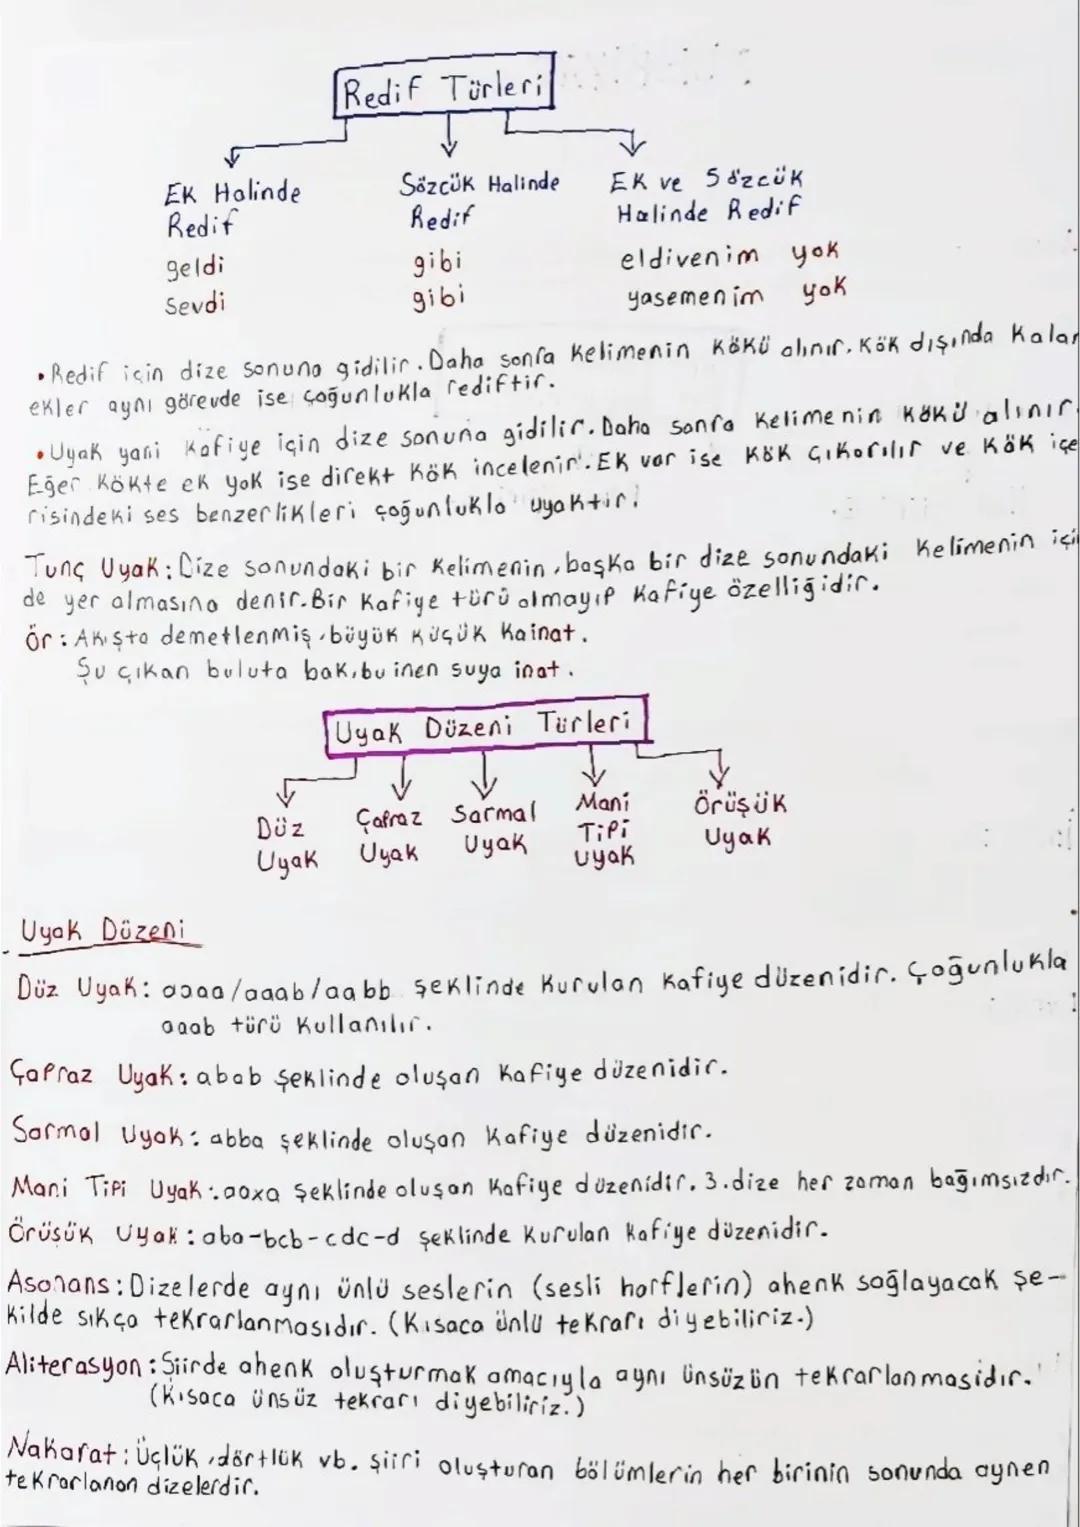 Redif Türleri
Ek Halinde Redif
Sözcük Halinde Redif
Ek ve Sözcük Halinde Redif
geldi
gibi
eldivenim yok
sevdi
gibi
yasemenim yok
• Redif için dize sonuna gidilir. Daha sonra kelimenin kökü alınır. Kök dışında kalan
ekler aynı görevde ise çoğunlukla rediftir.
• Uyak yani kafiye için dize sonuna gidilir. Daha sonra kelimenin kökü alınır.
Eğer kökte ek yok ise direkt kök incelenir. Ek var ise kök çıkarılır ve kök içe
risindeki ses benzerlikleri çoğunlukla uyaktır.
Tunç Uyak: Dize sonundaki bir kelimenin, başka bir dize sonundaki kelimenin için
de yer almasına denir. Bir kafiye türü olmayıp kafiye özelliğidir.
Ör: Akışta demetlenmiş, büyük küçük kainat.
Şu çıkan buluta bak, bu inen suya inat.
Uyak Düzeni Türleri
Düz Uyak
Çapraz Uyak
Sarmal Uyak
Mani Tipi Uyak
Örüşük Uyak
Uyak Düzeni
Düz Uyak: aaaa/aaab/aabb şeklinde kurulan kafiye düzenidir. Çoğunlukla
aaab türü kullanılır.
Çapraz Uyak: abab şeklinde oluşan kafiye düzenidir.
Sarmal Uyak: abba şeklinde oluşan kafiye düzenidir.
Mani Tipi Uyak: aaxa şeklinde oluşan kafiye düzenidir. 3. dize her zaman bağımsızdır.
Örüşük Uyak: aba-bcb-cdc-d şeklinde kurulan kafiye düzenidir.
Asonans: Dizelerde aynı ünlü seslerin (sesli harflerin) ahenk sağlayacak şe-
kilde sıkça tekrarlanmasıdır. (Kısaca ünlü tekrarı diyebiliriz.)
Aliterasyon: Şiirde ahenk oluşturmak amacıyla aynı ünsüzün tekrarlanmasıdır.
(Kısaca ünsüz tekrarı diyebiliriz.)
Nakarat: Üçlük, dörtlük vb. şiiri oluşturan bölümlerin her birinin sonunda aynen
tekrarlanan dizelerdir.